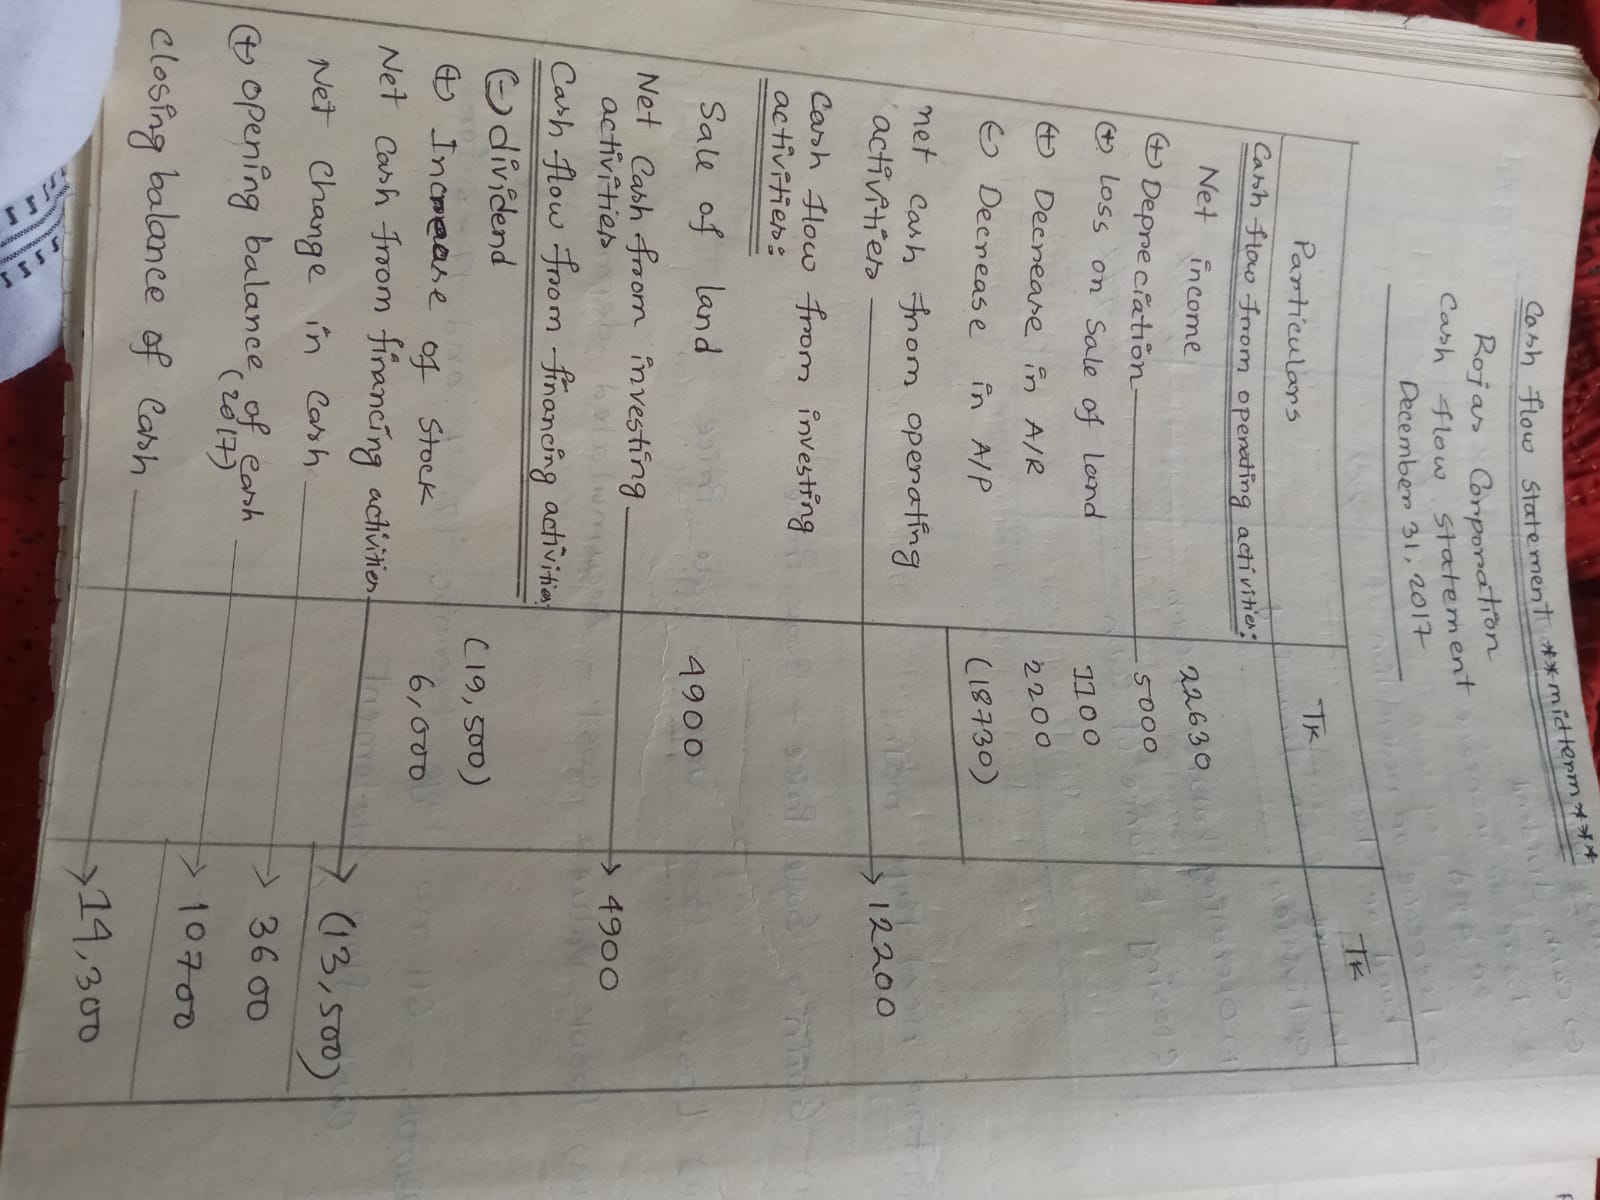 Cash flow statement **midterm***
Rojas Corporation
Cash flow statement
December 31, 2017
Particulars Tk Tk
Cash flow from operating activities:
Net income 22630
(+) Depreciation 5000
(+) loss on Sale of land 1100
(+) Decrease in A/R 2200
(-) Decrease in A/P (18730)
net cash from operating
activities → 12200
Cash flow from investing
activities:
Sale of land 4900
Net Cash from investing
activities → 4900
Cash flow from financing activities:
(-) dividend (19,500)
(+) Increase of Stock 6,000
Net Cash from financing activities → (13,500)
Net change in cash → 3600
(+) opening balance of cash → 10700
(2017)
closing balance of Cash → 14,300